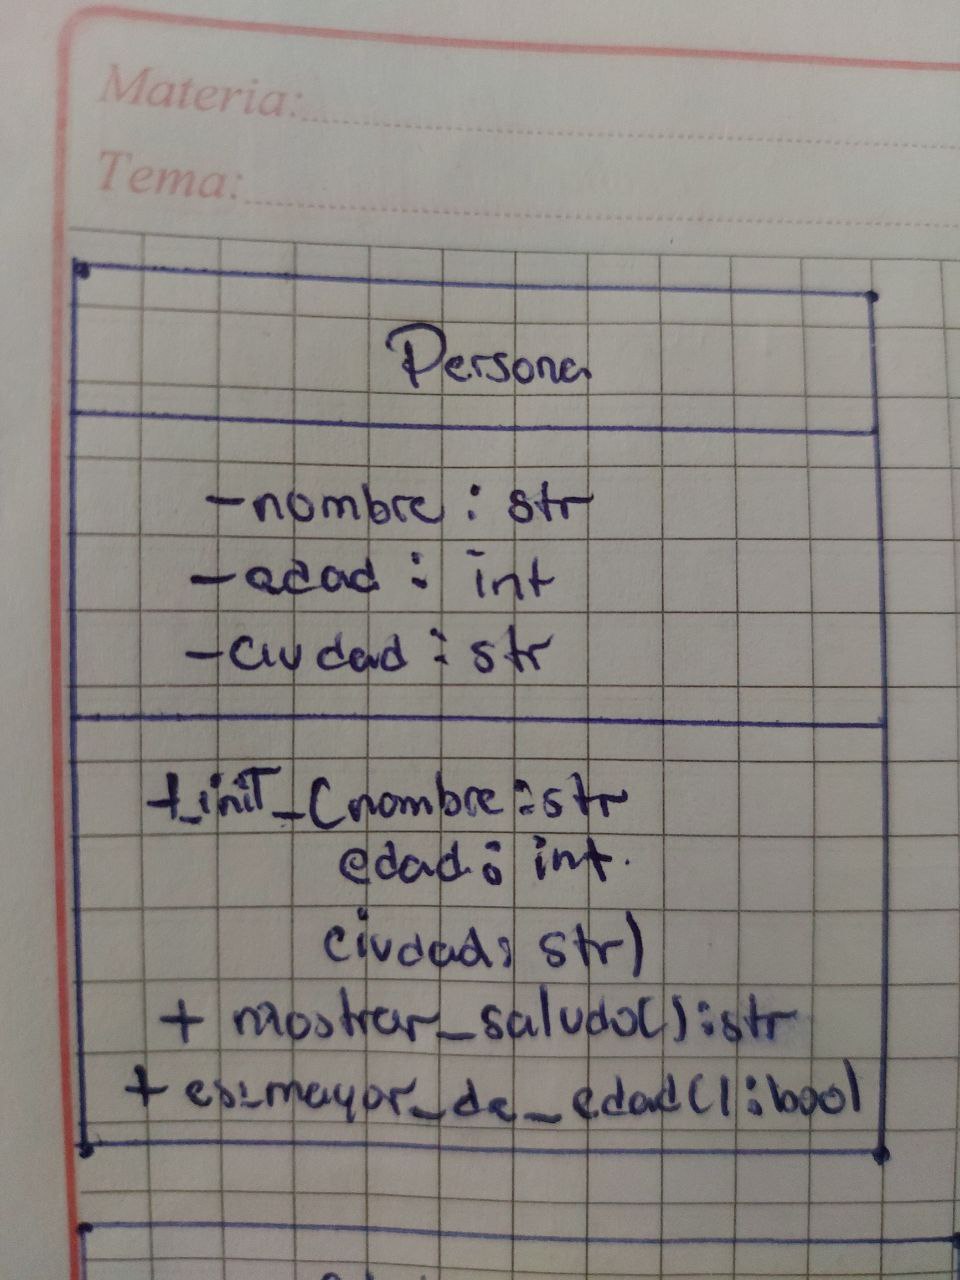 Materia:
Tema:
Persona
-nombre: str
-edad: int
-ciudad: str
+_init_(nombre: str
edad: int.
ciudad: str)
+ mostrar_saludo(): str
+ es_mayor_de_edad(): bool